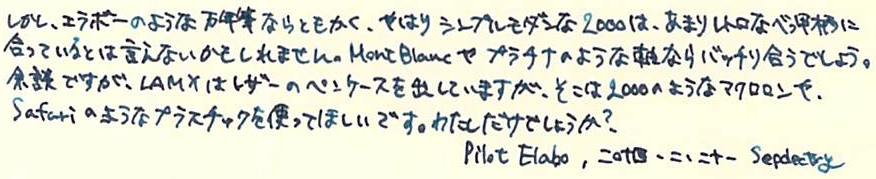 しかし、エラボーのような万年筆ならともかく、やはりシンプルモダンな2000は、あまりレトロなべっ甲柄に
合っているとは言えないかもしれません。Mont Blancやプラチナのような軸ならバッチリ合うでしょう。
余談ですが、LAMYはレザーのペンケースを出していますが、そこは2000のようなマクロロンや、
Safariのようなプラスチックを使ってほしいです。わたしだけでしょうか?
Pilot Elabo, 二〇十四・二・二十一